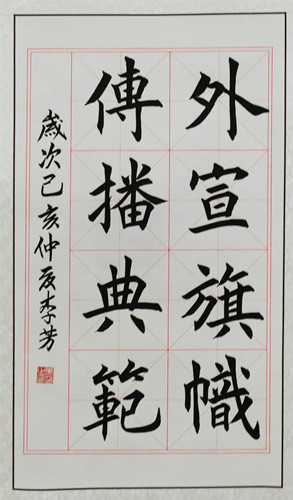 外宣旗幟
傳播典範
歲次己亥仲夏李芳